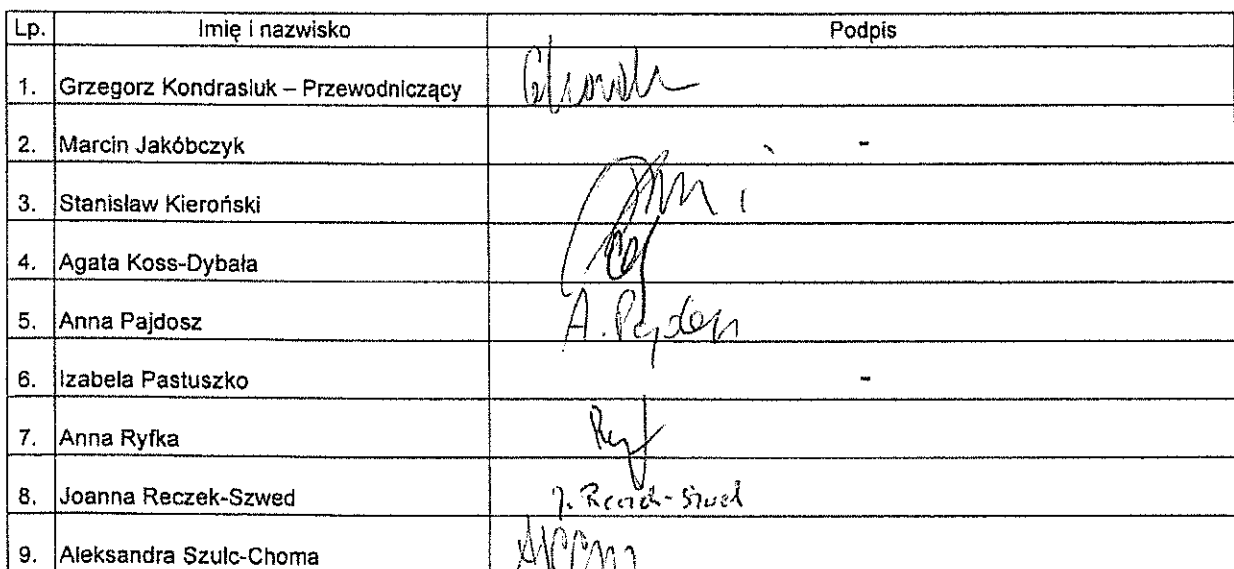 Lp. Imię i nazwisko Podpis
1. Grzegorz Kondrasiuk – Przewodniczący
2. Marcin Jakóbczyk -
3. Stanisław Kieroński
4. Agata Koss-Dybała
5. Anna Pajdosz A. Pajdosz
6. Izabela Pastuszko -
7. Anna Ryfka
8. Joanna Reczek-Szwed J. Reczek-Szwed
9. Aleksandra Szulc-Choma